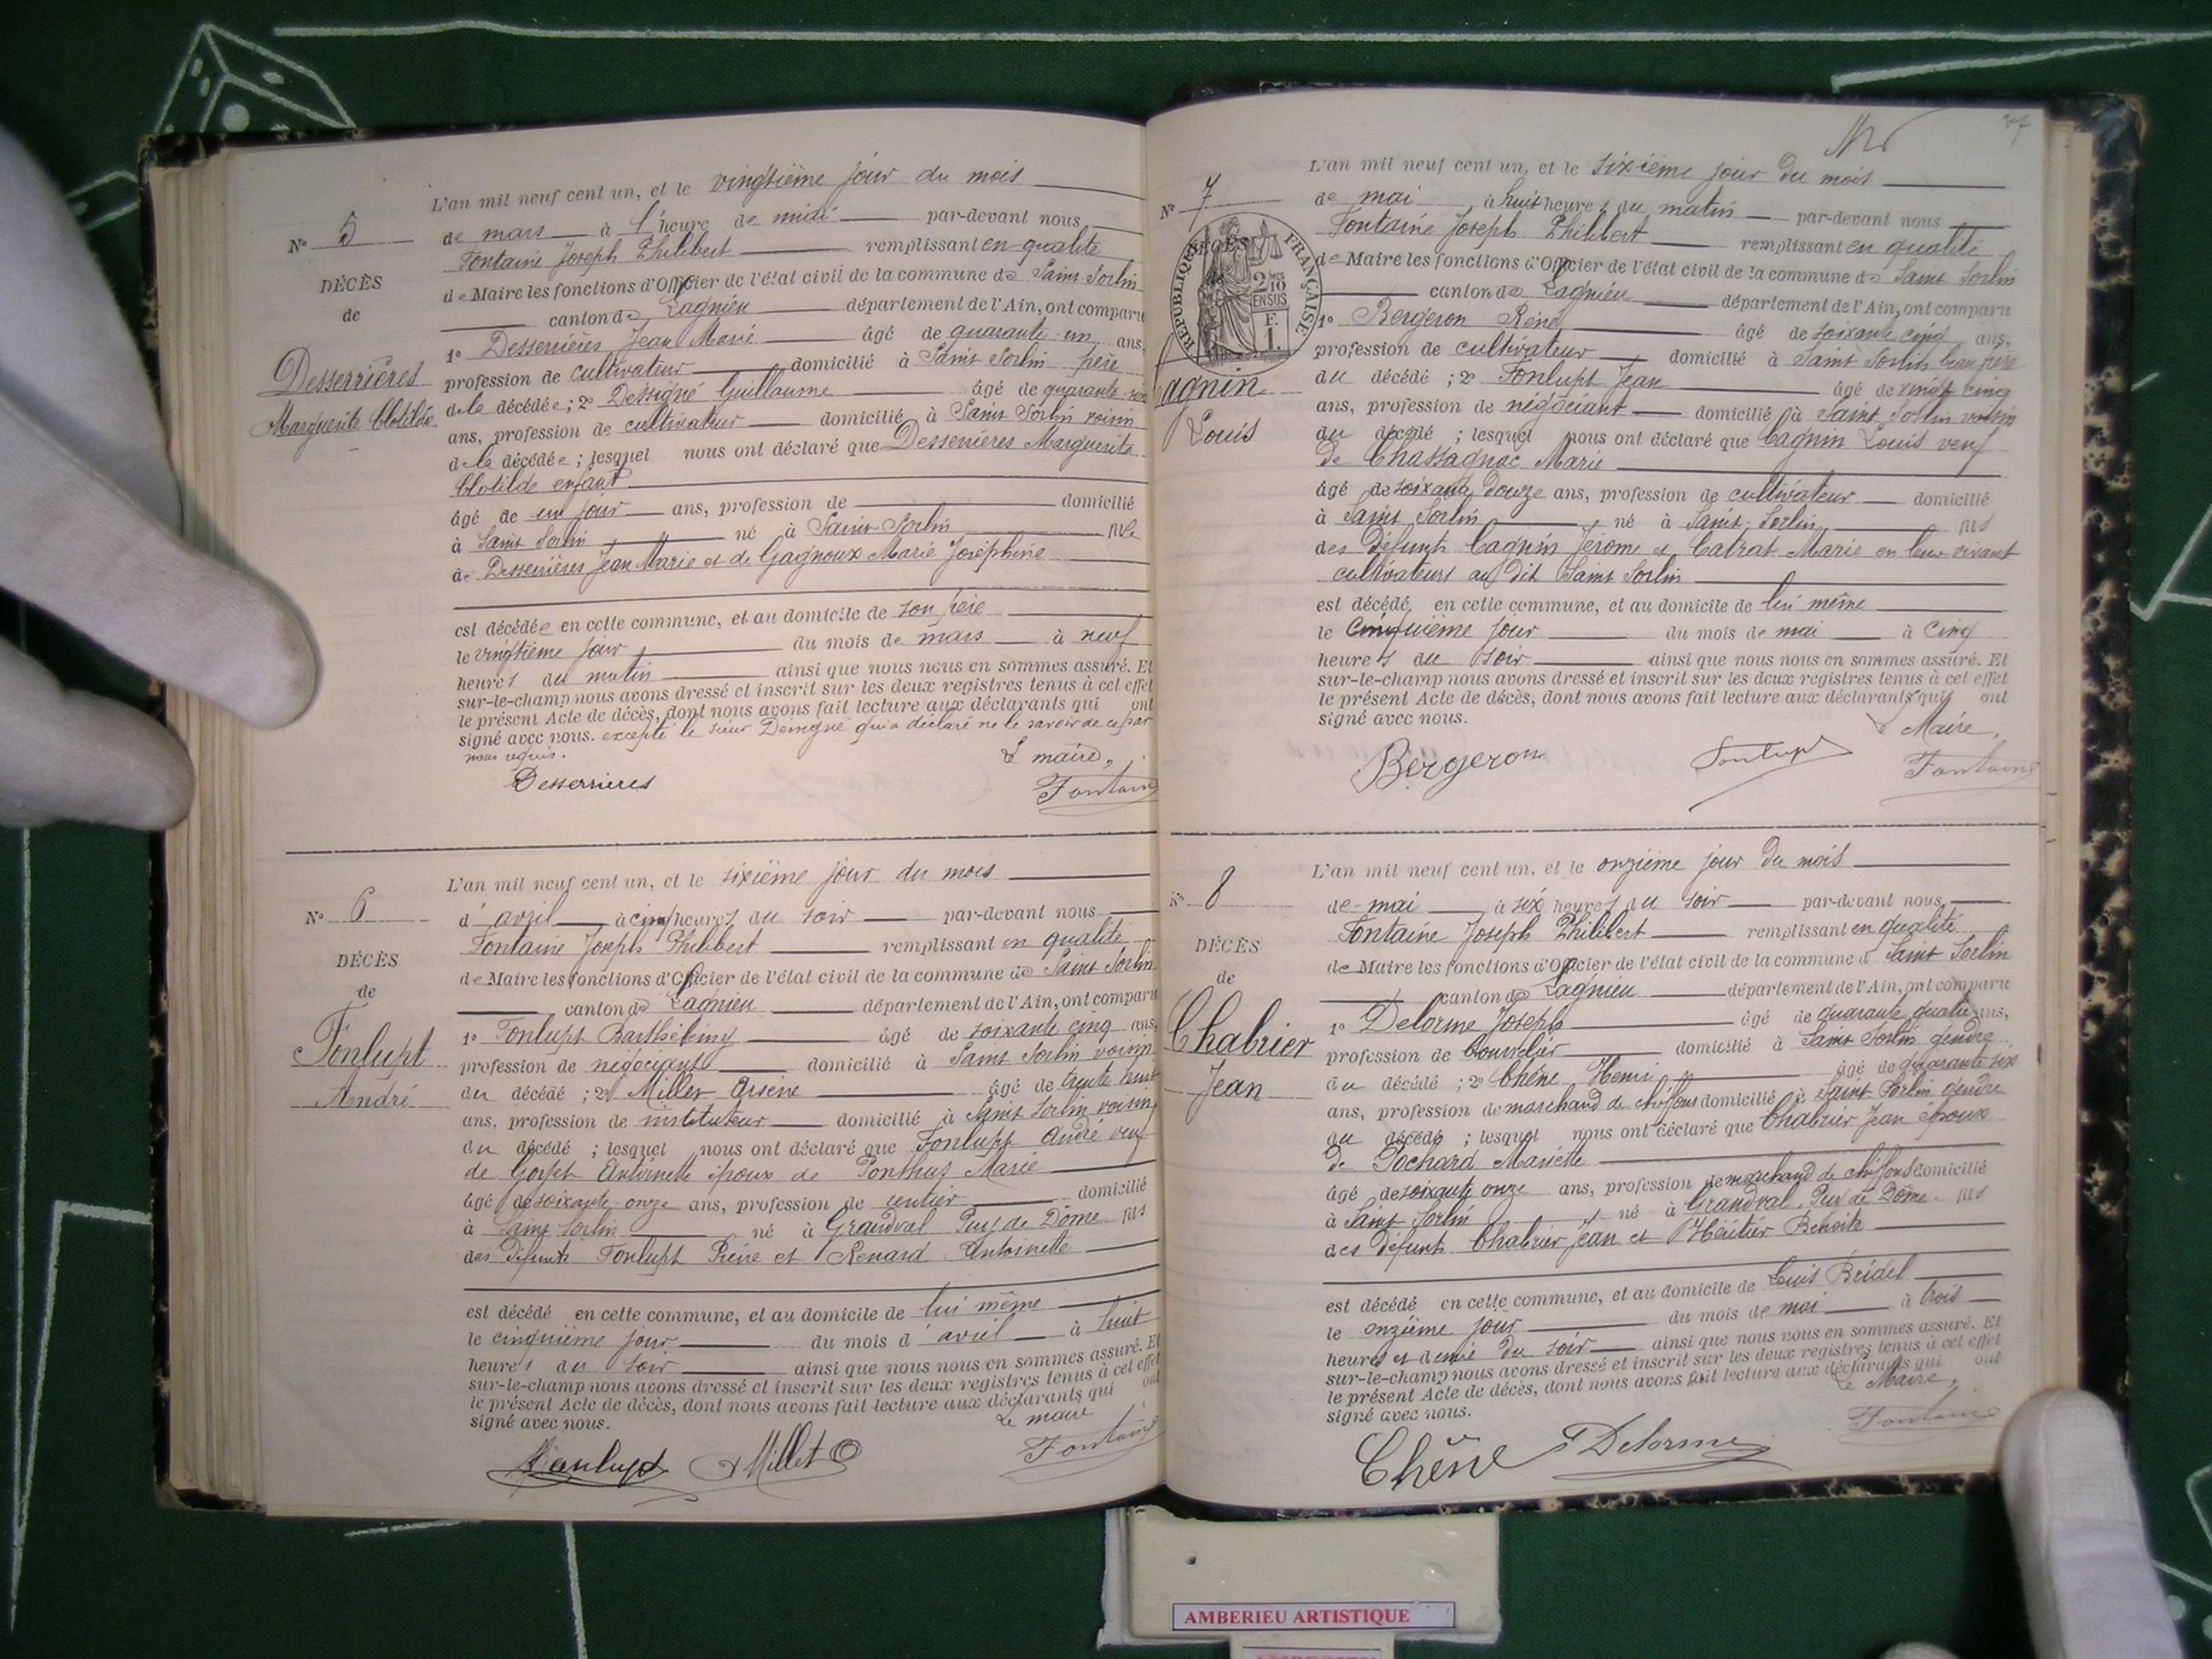 L'an mil neuf cent un, et le vingtième jour du mois
N° 5
de mars à 1 heure de midi par-devant nous
Fontaine Joseph Philibert remplissant en qualité
DÉCÈS
de Maire les fonctions d'Officier de l'état civil de la commune de Saint Sorlin
de
canton de Lagnieu département de l'Ain, ont comparu
1° Desserrières Jean Marie âgé de quarante-un ans,
Desserrières
profession de cultivateur domicilié à Saint Sorlin père
Marguerite Clotilde
de la décédée; 2° Dessigné Guillaume âgé de quarante-six
ans, profession de cultivateur domicilié à Saint Sorlin voisin
de la décédée; lesquel nous ont déclaré que Desserrières Marguerite
Clotilde enfant
âgé de un jour ans, profession de domicilié
à Saint Sorlin né à Saint-Sorlin fille
de Desserrières Jean Marie et de Gagnoux Marie Joséphine
est décédée en cette commune, et au domicile de son père
le vingtième jour du mois de mars à neuf
heures du matin ainsi que nous nous en sommes assuré. Et
sur-le-champ nous avons dressé et inscrit sur les deux registres tenus à cet effet
le présent Acte de décès, dont nous avons fait lecture aux déclarants qui ont
signé avec nous. excepté le sieur qui a déclaré ne le savoir de ce par
nous requis.
Le maire,
Desserrieres Fontaine
L'an mil neuf cent un, et le sixième jour du mois
N° 6
d'avril à cinq heures du soir par-devant nous
Fontaine Joseph Philibert remplissant en qualité
DÉCÈS
de Maire les fonctions d'Officier de l'état civil de la commune de Saint Sorlin
de
canton de Lagnieu département de l'Ain, ont comparu
1° Fonlupt Barthélémy âgé de soixante cinq ans,
Fonlupt
profession de négociant domicilié à Saint Sorlin voisin
André
du décédé; 2° Millet Arsène âgé de trente huit
ans, profession de instituteur domicilié à Saint Sorlin voisin
du décédé; lesquel nous ont déclaré que Fonlupt André veuf
de Antoinette époux de Ponthus Marie
âgé de soixante-onze ans, profession de rentier domicilié
à Saint Sorlin né à Grandval Puy de Dôme fils
des défunts Fonlupt Pierre et Renard Antoinette
est décédé en cette commune, et au domicile de lui même
le cinquième jour du mois d'avril à huit
heures du soir ainsi que nous nous en sommes assuré. Et
sur-le-champ nous avons dressé et inscrit sur les deux registres tenus à cet effet
le présent Acte de décès, dont nous avons fait lecture aux déclarants qui ont
signé avec nous.
Le maire
Fonlupt Millet Fontaine
L'an mil neuf cent un, et le sixième jour du mois
N° 7
de mai à huit heures du matin par-devant nous
Fontaine Joseph Philibert remplissant en qualité
DÉCÈS
RÉPUBLIQUE FRANÇAISE
2/10
EN SUS
F.
1.
de Maire les fonctions d'Officier de l'état civil de la commune de Saint Sorlin
canton de Lagnieu département de l'Ain, ont comparu
1° Bergeron Réné âgé de soixante cinq ans,
profession de cultivateur domicilié à Saint Sorlin beau père
Cagnin
du décédé; 2° Fonlupt Jean âgé de vingt cinq
ans, profession de négociant domicilié à Saint Sorlin voisin
Louis
du décédé; lesquel nous ont déclaré que Cagnin Louis veuf
de Chassagnac Marie
âgé de soixante douze ans, profession de cultivateur domicilié
à Saint Sorlin né à Saint-Sorlin fils
des défunts Cagnin Jérome et Catrat Marie en leur vivant
cultivateurs au dit Saint Sorlin
est décédé en cette commune, et au domicile de lui même
le cinquième jour du mois de mai à cinq
heures du soir ainsi que nous nous en sommes assuré. Et
sur-le-champ nous avons dressé et inscrit sur les deux registres tenus à cet effet
le présent Acte de décès, dont nous avons fait lecture aux déclarants qui ont
signé avec nous.
Le Maire,
Bergeron Fonlupt Fontaine
L'an mil neuf cent un, et le onzième jour du mois
N° 8
de mai à six heures du soir par-devant nous
Fontaine Joseph Philibert remplissant en qualité
DÉCÈS
de Maire les fonctions d'Officier de l'état civil de la commune d Saint Sorlin
de
canton de Lagnieu département de l'Ain, ont comparu
Chabrier
1° Delorme Joseph âgé de quarante quatre ans,
profession de bourrelier domicilié à Saint Sorlin gendre
Jean
du décédé; 2° Chêne Henri âgé de quarante six
ans, profession de marchand de chiffons domicilié à Saint Sorlin gendre
du décédé; lesquel nous ont déclaré que Chabrier Jean époux
de Pochard Mariette
âgé de soixante onze ans, profession de marchand de chiffons domicilié
à Saint Sorlin né à Grandval, Puy de Dôme fils
des défunts Chabrier Jean et Héritier Benoite
est décédé en cette commune, et au domicile de Louis Bridel
le onzième jour du mois de mai à trois
heures et demie du soir ainsi que nous nous en sommes assuré. Et
sur-le-champ nous avons dressé et inscrit sur les deux registres tenus à cet effet
le présent Acte de décès, dont nous avons fait lecture aux déclarants qui ont
signé avec nous.
Le Maire,
Chêne Delorme Fontaine
AMBERIEU ARTISTIQUE